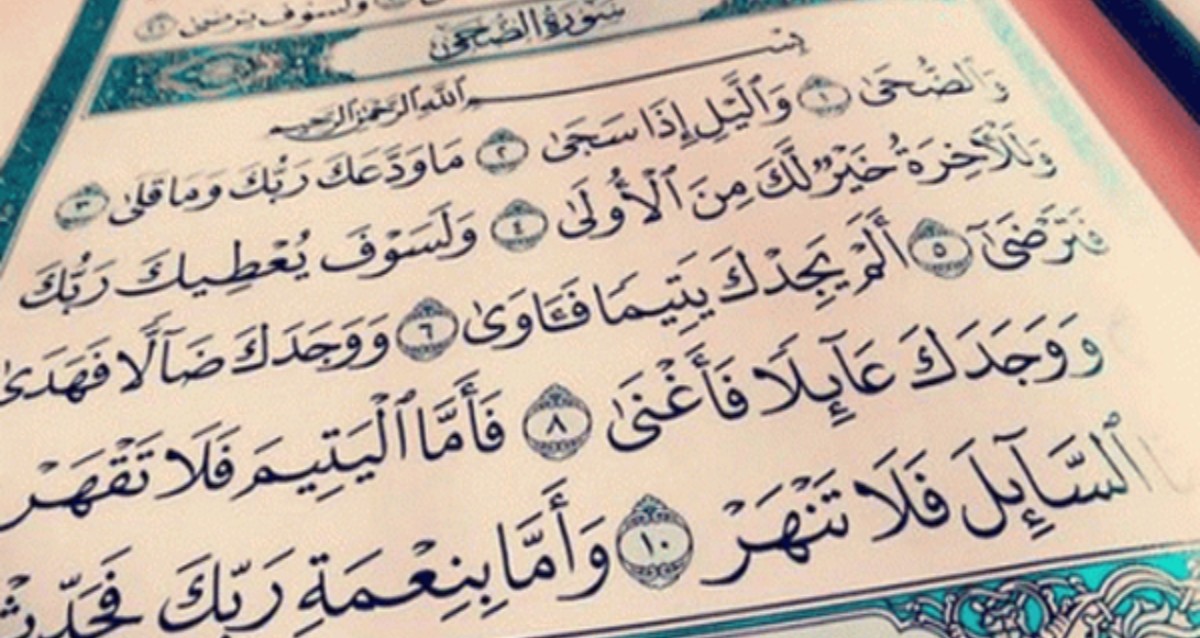 ولسوف يرضى ٢١
سورة الضحى
بِسْمِ ٱللَّهِ ٱلرَّحْمَٰنِ ٱلرَّحِيمِ
وَٱلضُّحَىٰ ١ وَٱلَّيْلِ إِذَا سَجَىٰ ٢ مَا وَدَّعَكَ رَبُّكَ وَمَا قَلَىٰ ٣
وَلَلْأَخِرَةُ خَيْرٌ لَّكَ مِنَ ٱلْأُولَىٰ ٤ وَلَسَوْفَ يُعْطِيكَ رَبُّكَ
فَتَرْضَىٰٓ ٥ أَلَمْ يَجِدْكَ يَتِيمًا فَـَٔاوَىٰ ٦ وَوَجَدَكَ ضَآلًّا فَهَدَىٰ
وَوَجَدَكَ عَآئِلًا فَأَغْنَىٰ ٨ فَأَمَّا ٱلْيَتِيمَ فَلَا تَقْهَرْ
ٱلسَّآئِلَ فَلَا تَنْهَرْ ١٠ وَأَمَّا بِنِعْمَةِ رَبِّكَ فَحَدِّثْ